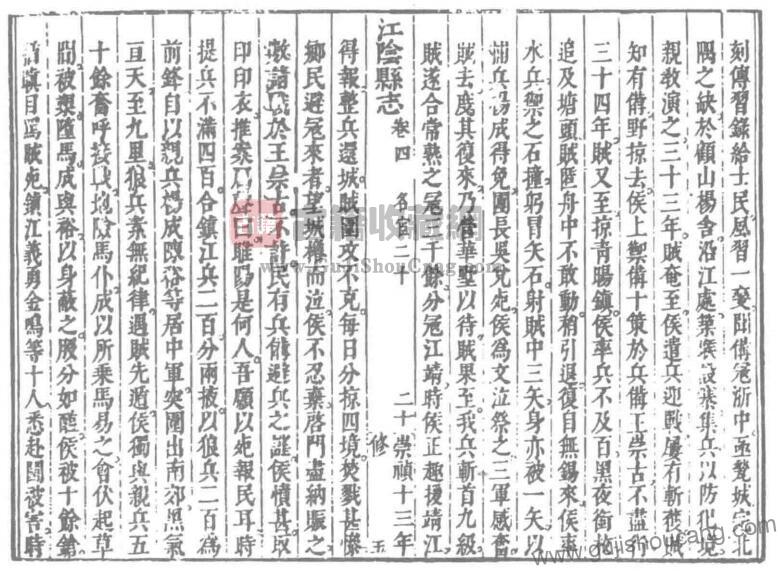 刻傳習錄給士民風習一變聞寇浙中亟甃城完北
隅之缺於顧山楊舍沿江處築寨設集兵以防
親敎演之三十三年賊奄至侯遣兵迎戰屢有斬獲賊
知有備野掠去侯上禦十策於兵備王崇古不盡行
三十四年賊又至掠靑暘鎭侯率兵不及百黑夜銜枚
追及塘頭賊匿舟中不敢動稍引退復自無錫來侯率
水兵禦之石撞躬冒矢石射賊中三矢身亦被一矢以
浦兵楊成得免團長吳兌死侯爲文泣祭之三軍感奮
賊去度其復來乃營華墅以待賊果至我兵斬首九級
賊遂合常熟之寇三千餘分寇江靖時侯正趣援靖江
江陰縣志 卷四 名宦 二十 二十 崇禎十三年修 五
得報整兵還城賊圍攻不克每日分掠四境焚戮甚慘
鄉民避寇來者望城而泣侯不忍棄啓門盡納賑之
諸戰於王崇古不許民有兵備避兵之侯憤甚取
印印衣推案大笑曰睢陽是何人吾願以死報民耳時
提兵不滿四百合鎭江兵二百分兩掖以狼兵二百爲
前鋒自以親兵楊成陳裕等居中軍突圍出南郊黑氣
亘天至九里狼兵素無紀律遇賊先遁侯獨與親兵五
十餘奮呼殺賊地險馬仆成以所乘馬易之會伏起草
間被槊墮馬成與裕以身蔽之股分如醢侯被十餘鎗
猶瞋目罵賊死鎭江義勇金鳴等十人悉赴鬬被害時
古籍收藏網
www.GuJiShouCang.com
www.gujishoucang.com